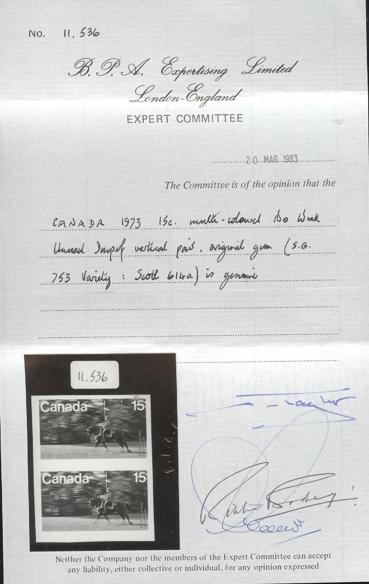 No. 11,536
B. P. A. Expertising Limited
London-England
EXPERT COMMITTEE
20 MAR 1983
The Committee is of the opinion that the
CANADA 1973 15c. multi-coloured No Wmk
Unused Imperf vertical pair, original gum (S.G.
753 Variety: Scott 614a) is genuine
11,536
Canada 15
Canada 15
Neither the Company nor the members of the Expert Committee can accept
any liability, either collective or individual, for any opinion expressed